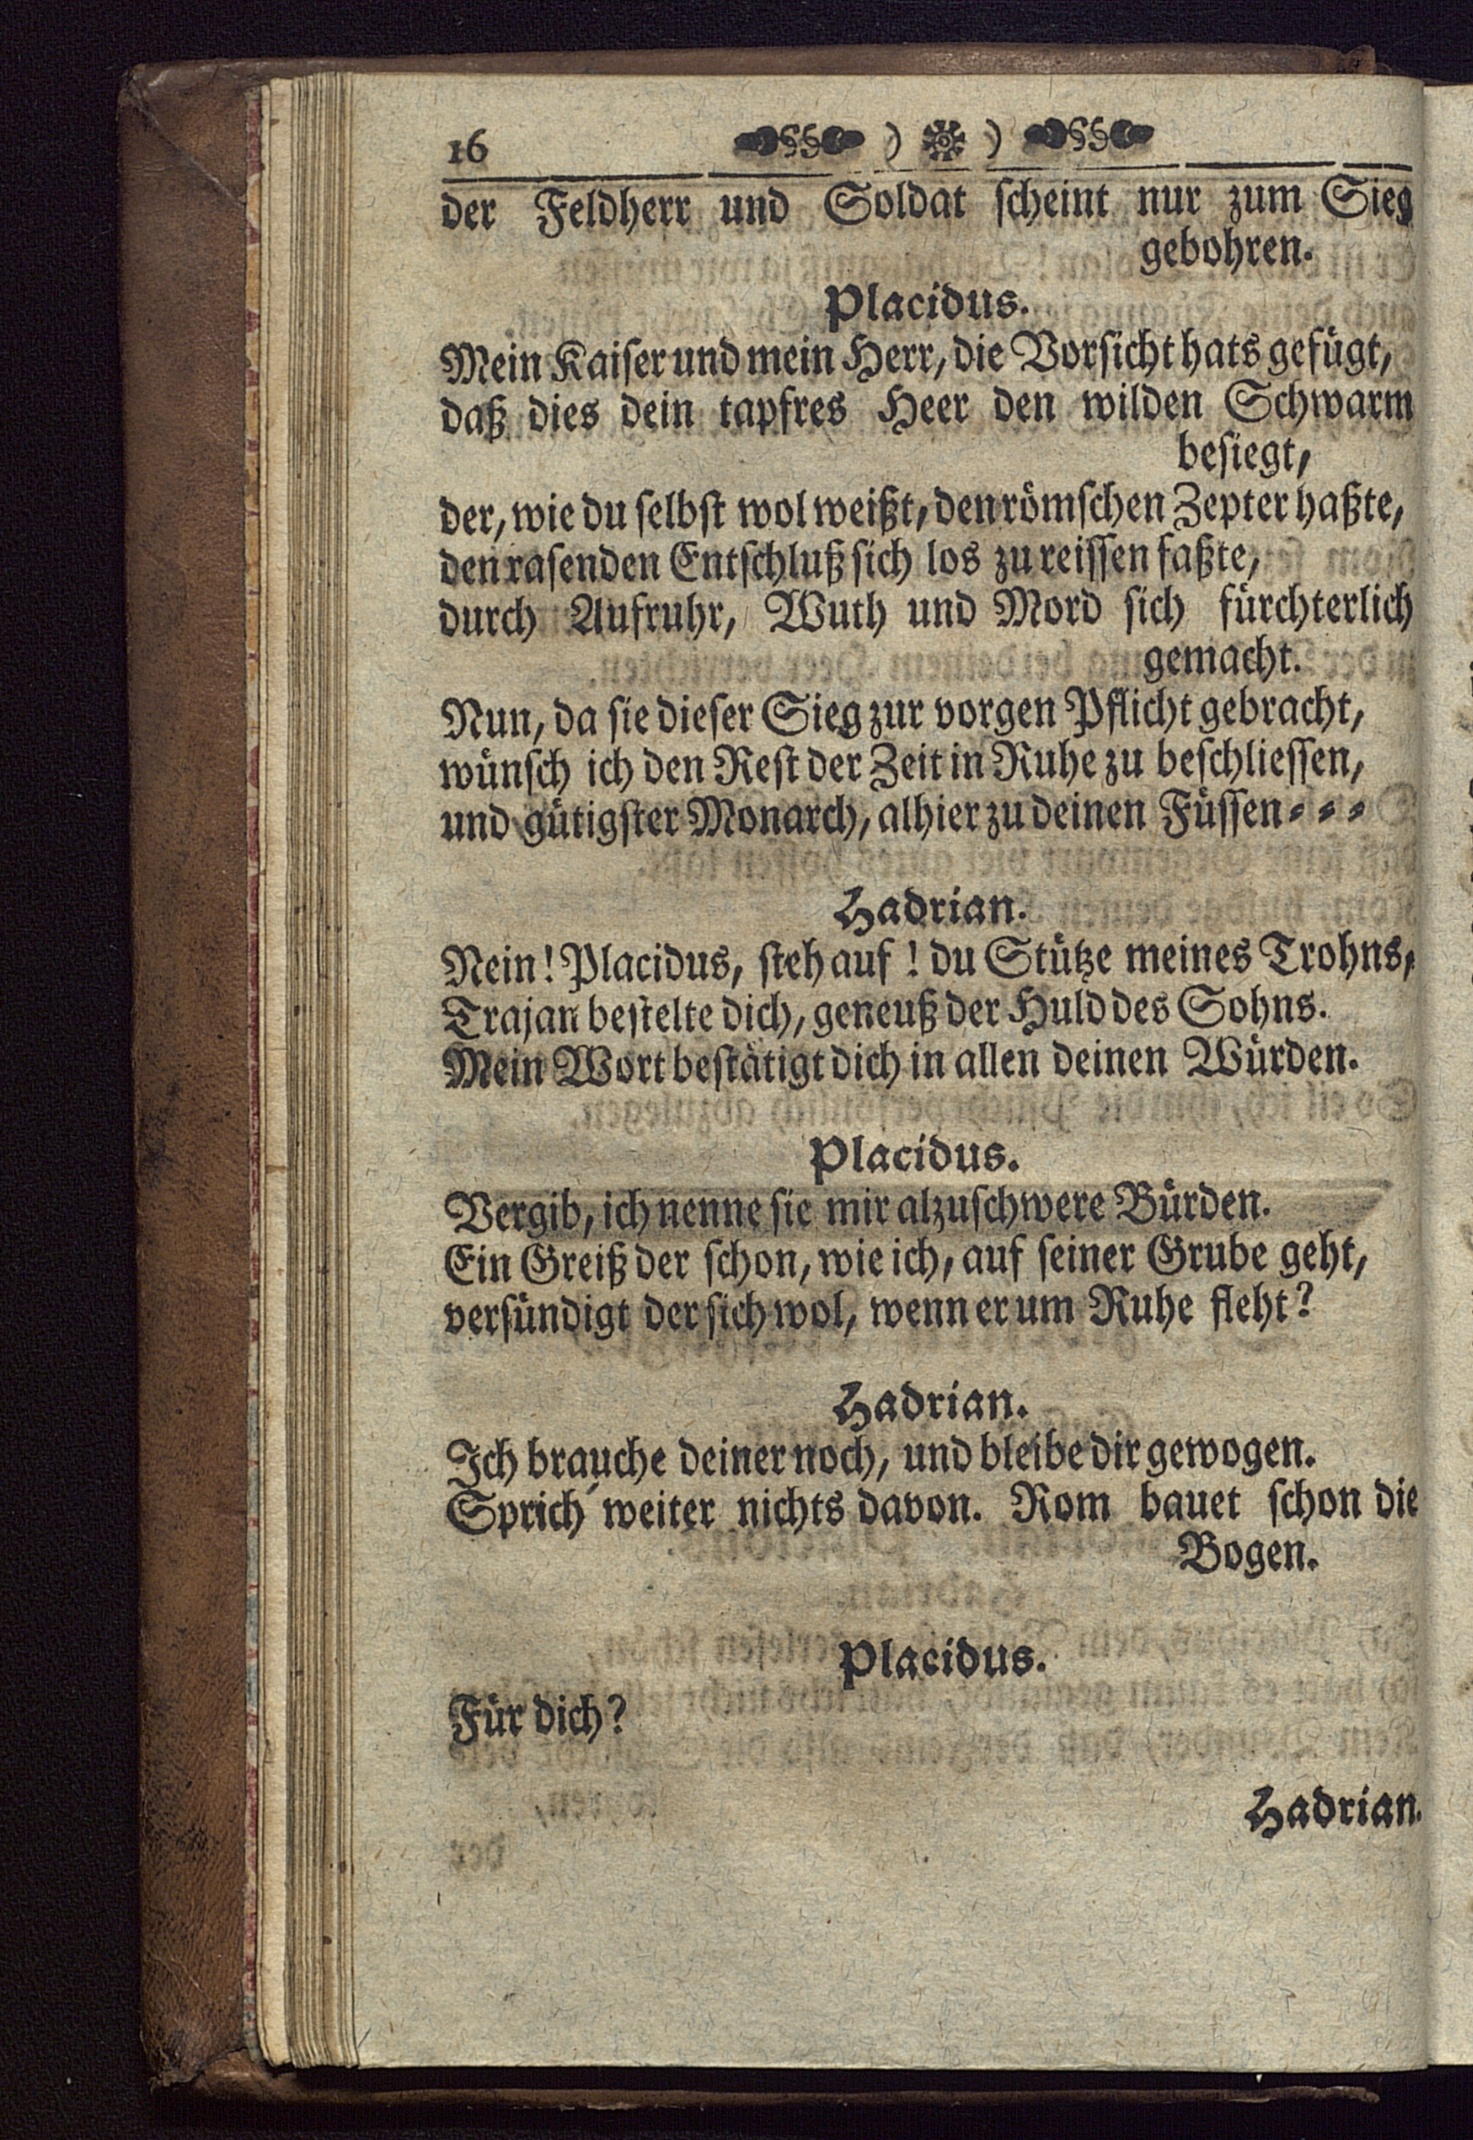 16
der Feldherr und Soldat scheint nur zum Sieg
gebohren.
Placidus.
Mein Kaiser und mein Herr, die Vorsicht hats gefügt,
daß dies dein tapfres Heer den wilden Schwarm
besiegt,
der, wie du selbst wol weißt, den römschen Zepter haßte,
den rasenden Entschluß sich los zu reissen faßte,
durch Aufruhr, Wuth und Mord sich fürchterlich
gemacht.
Nun, da sie dieser Sieg zur vorgen Pflicht gebracht,
wünsch ich den Rest der Zeit in Ruhe zu beschliessen,
und gütigster Monarch, alhier zu deinen Füssen - - -
Hadrian.
Nein! Placidus, steh auf! du Stütze meines Trohns,
Trajan bestelte dich, geneuß der Huld des Sohns.
Mein Wort bestätigt dich in allen deinen Würden.
Placidus.
Vergib, ich nenne sie mir alzuschwere Bürden.
Ein Greiß der schon, wie ich, auf seiner Grube geht,
versündigt der sich wol, wenn er um Ruhe fleht?
Hadrian.
Ich brauche deiner noch, und bleibe dir gewogen.
Sprich weiter nichts davon. Rom bauet schon die
Bogen.
Placidus.
Für dich?
Hadrian.